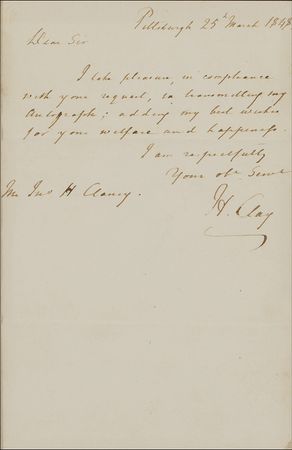 Pittsburgh 25th March 1848
Dear Sir
I take pleasure, in compliance
with your request, in transmitting my
Autograph; adding my best wishes
for your welfare and happiness.
I am respectfully
Your obt. Servt
Mr Jno H Clancy.
H. Clay